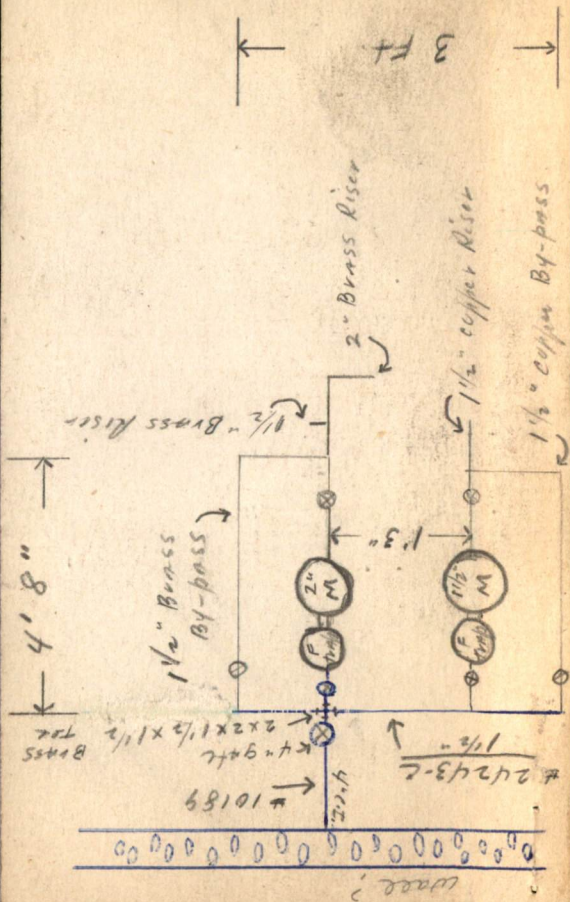 3 Ft
2" Brass Riser
1½" Copper Riser
1½" Copper By-pass
1½" Brass Riser
4' 8"
1½" Brass
By-pass
1' 3"
2"
M
1½"
M
F
F
Brass
Tee
2x2x1½x1½
4" gate
# 10189
4" C.I.
# 24243-C
1½"
wall?